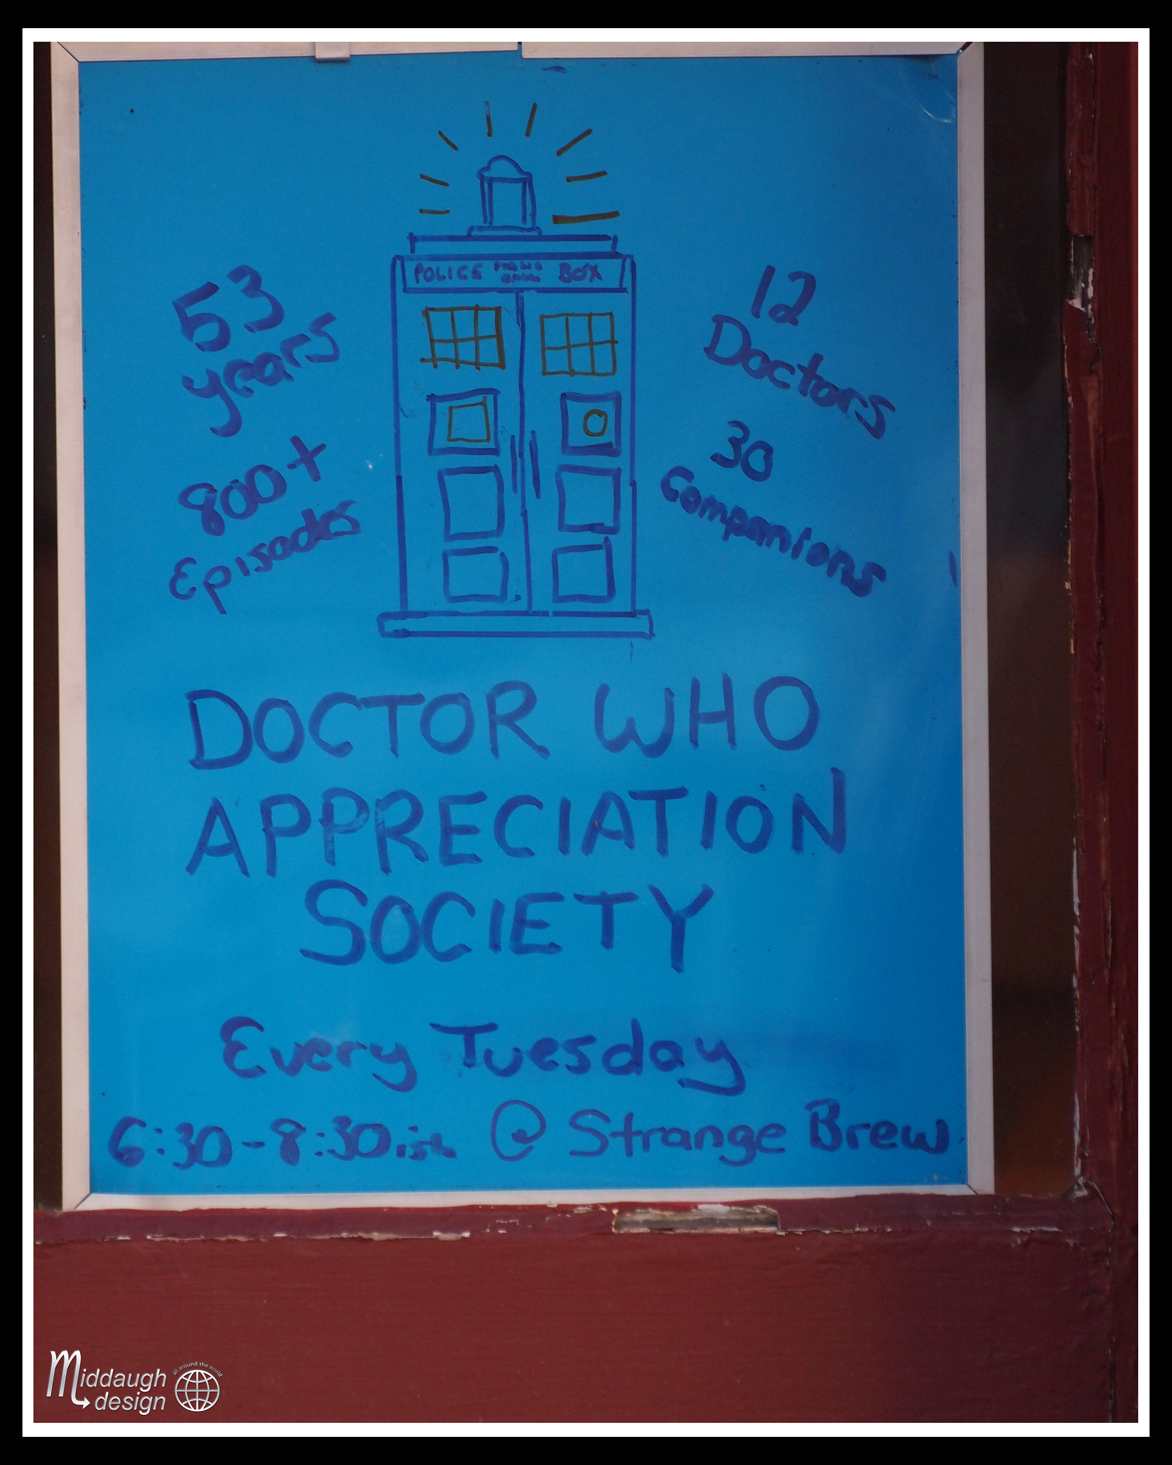 POLICE PUBLIC CALL BOX
53
years
800+
Episodes
12
Doctors
30
Companions
DOCTOR WHO
APPRECIATION
SOCIETY
Every Tuesday
6:30-8:30ish @ Strange Brew
Middaugh
design
all around the world